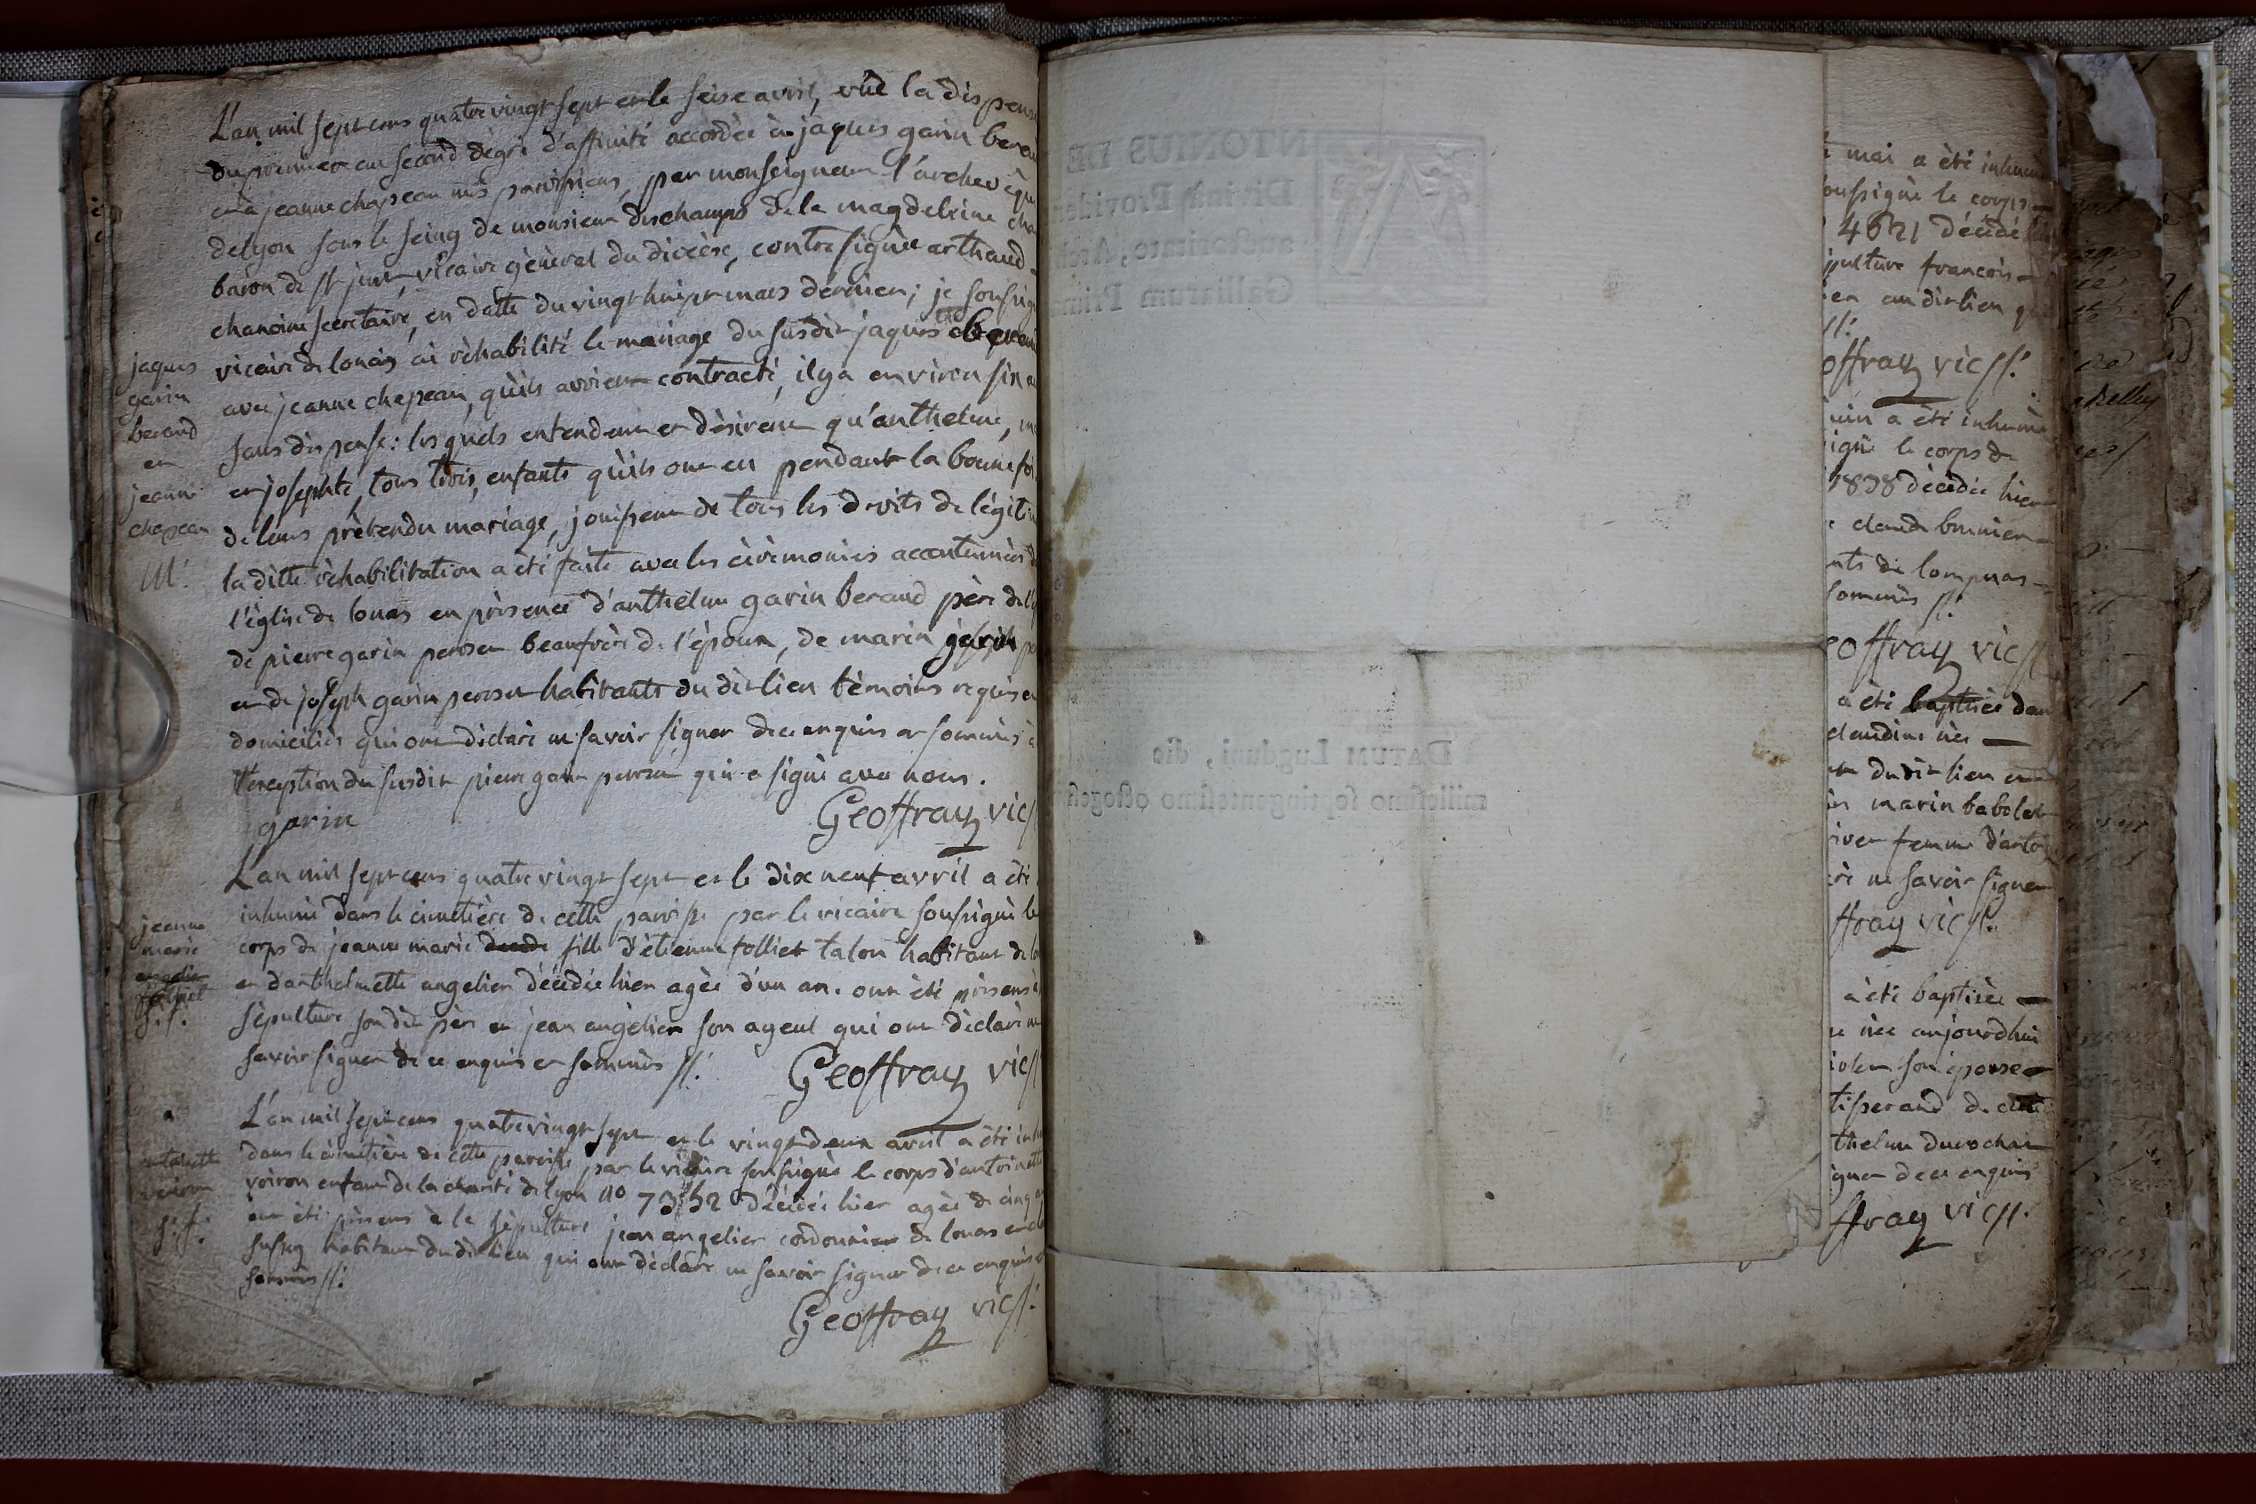 L'an mil sept cens quatre vingt sept et le seize avril, vûe la dispense
du premier au second dègré d'affinité accordée à jaques garin beraud
et à jeanne chapeau mes paroissiens, par monseigneur l'archevêque
de lyon sous le seing de monsieur deschamps de la magdeleine cha
baron de st just, vicaire gènèral du diocèse, contresignèe arthaud
chanoine secretaire, en datte du vingt huit mars dernier; je soussigné
vicaire de lonas ai rèhabilité le mariage du susdit jaques
avec jeanne chapeau, qu'ils avoient contracté, il y a environ six an
sans dispense: lesquels entendent et dèsirent qu'anthelme,
et josephte, tous trois, enfants qu'ils ont eu pendant la bonne foi
de leurs prètendu mariage, jouissent de tous les droits de lègitim
la ditte rèhabilitation a èté faite avec les cèrèmonies accoutumèes d
l'èglise de lonas en prèsence d'anthelme garin beraud père de l'
de pierre garin perosen beaufrère de l'èpoux, de marin
et de joseph garin perosen habitants du dit lieu tèmoins requis et
domiciliès qui ont dèclarè ne savoir signer de ce enquis et sommès à
l'exeption du susdit pierre garin perosen qui a signè avec nous.
garin Geoffray vic
jaques
garin
beraud
et
jeanne
chapeau
M.
L'an mil sept cens quatre vingt sept et le dix neuf avril a èté
inhumè dans le cimetière de cette paroisse par le vicaire soussignè le
corps de jeanne marie fille d'ètienne folliet talon habitant de
et d'anthelmette angelier dècèdèe hier agèe d'un an. ont èté prèsens à
sèpulture son dit père et jean angèlier son ayeul qui ont dèclarè ne
savoir signer de ce enquis et sommès //.
Geoffray vic
jeanne
marie
folliet
s.f.
L'an mil sept cens quatre vingt sept et le vingt deux avril a èté inhu
dans le cimetière de cette paroisse par le vicaire soussignè le corps d'antoinette
voiron enfant de la charité de lyon no 73 dècèdèe hier agèe de cinq
ont èté prèsens à la sèpulture jean angelier cordonnier de lonas et
habitant du dit lieu qui ont dèclarè ne savoir signer de ce enquis
sommès //.
Geoffray vic//.
antoinette
voiron
s.f.
NTONIUS DE
Divinâ Providen
auctoritate, Arch
Galliarum Prim
DATUM Lugduni, die
millesimo septingentesimo octoges
mai a èté inhum
soussignè le corps
4621 dècèdè
sèpulture francois
au dit lieu q
//.
offray vic//.
juin a èté inhumè
le corps de
1838 dècèdèe hier
claude bonnier
nts de lompnas
sommès //.
eoffray vic//
a èté baptisèe dan
claudine nèe
du dit lieu et
marin babolat
femme d'anto
ne savoir signer
ffray vic//.
a èté baptisèe
nèe aujourdhui
son èpouse
tisserand de cette
thelme durochat
igner de ce enquis
ffray vic//.